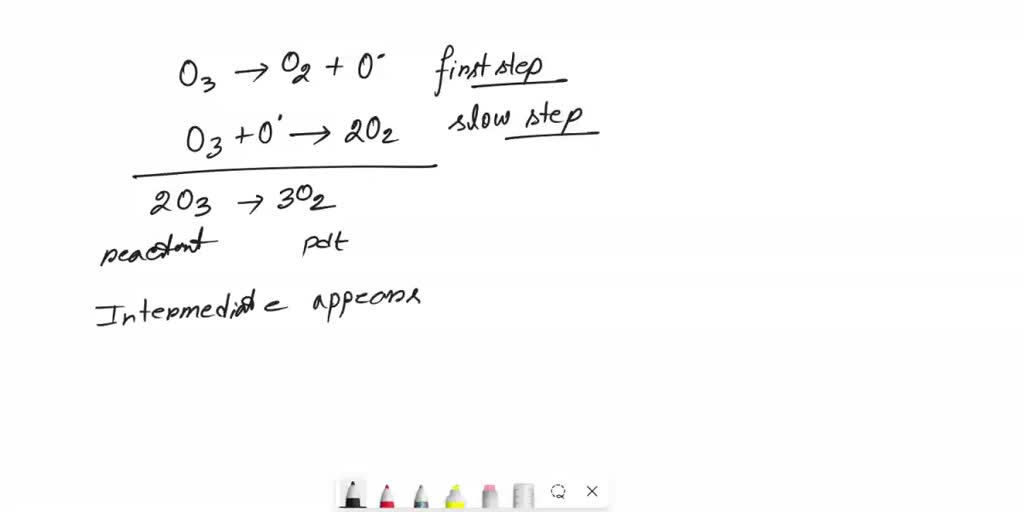 O₃ → O₂ + O· first step
O₃ + O· → 2O₂ slow step
2O₃ → 3O₂
reactant pdt
Intermediate appears